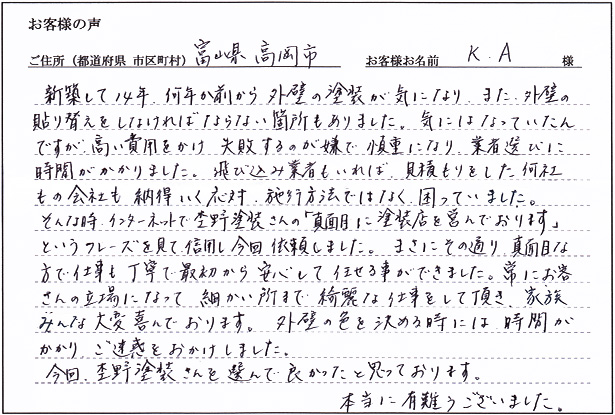 お客様の声
ご住所（都道府県 市区町村） 富山県 高岡市 お客様お名前 K.A 様
新築して14年、何年か前から外壁の塗装が気になり、また、外壁の
貼り替えをしなければならない箇所もありました。気にはなっていたん
ですが、高い費用をかけ失敗するのが嫌で慎重になり、業者選びに
時間がかかりました。飛び込み業者もいれば、見積もりをした何社
もの会社も納得いく応対、施行方法ではなく、困っていました。
そんな時、インターネットで杢野塗装さんの「真面目に塗装店を営んでおります」
というフレーズを見て信用し今回依頼しました。まさにその通り、真面目な
方で仕事も丁寧で最初から安心して任せる事ができました。常にお客
さんの立場になって、細かい所まで綺麗な仕事をして頂き、家族
みんな大変喜んでおります。外壁の色を決める時には時間が
かかり、ご迷惑をおかけしました。
今回、杢野塗装さんを選んで良かったと思っております。
本当に有難うございました。